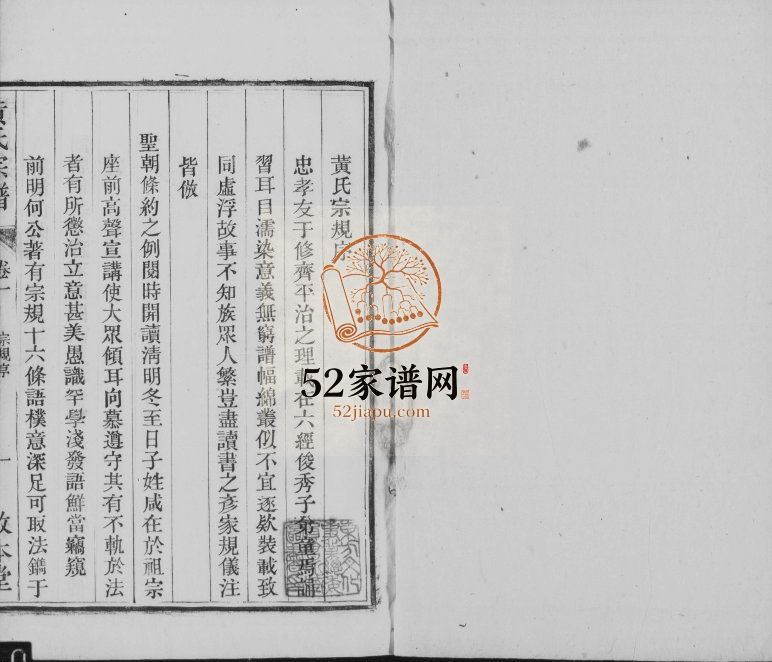 黃氏宗規序
忠孝友于修齊平治之理載在六經俊秀子弟童焉誦
習耳目濡染意義無窮譜幅綿叢似不宜逐欵裝載致
同虛浮故事不知族眾人繁豈盡讀書之彥家規儀注
皆倣
聖朝條約之例閱時開讀清明冬至日子姓咸在於祖宗
座前高聲宣講使大眾傾耳向慕遵守其有不軌於法
者有所懲治立意甚美愚識罕學淺發語鮮當竊窺
前明何公著有宗規十六條語樸意深足可取法鐫于
黃氏宗譜
卷一
宗規序
一
敦本堂
52家谱网
52jiapu.com